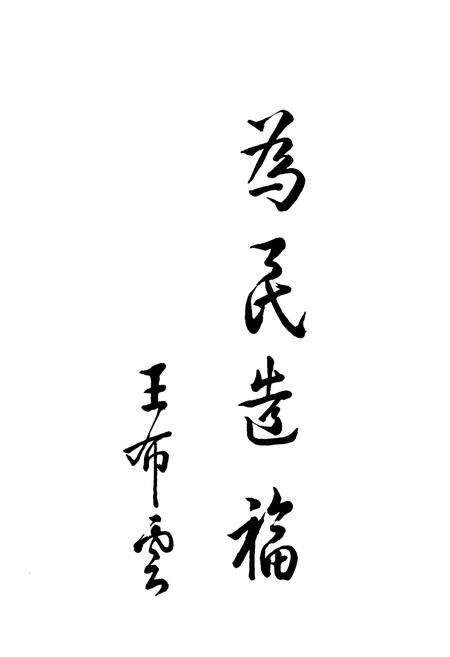 為民造福
王布雲